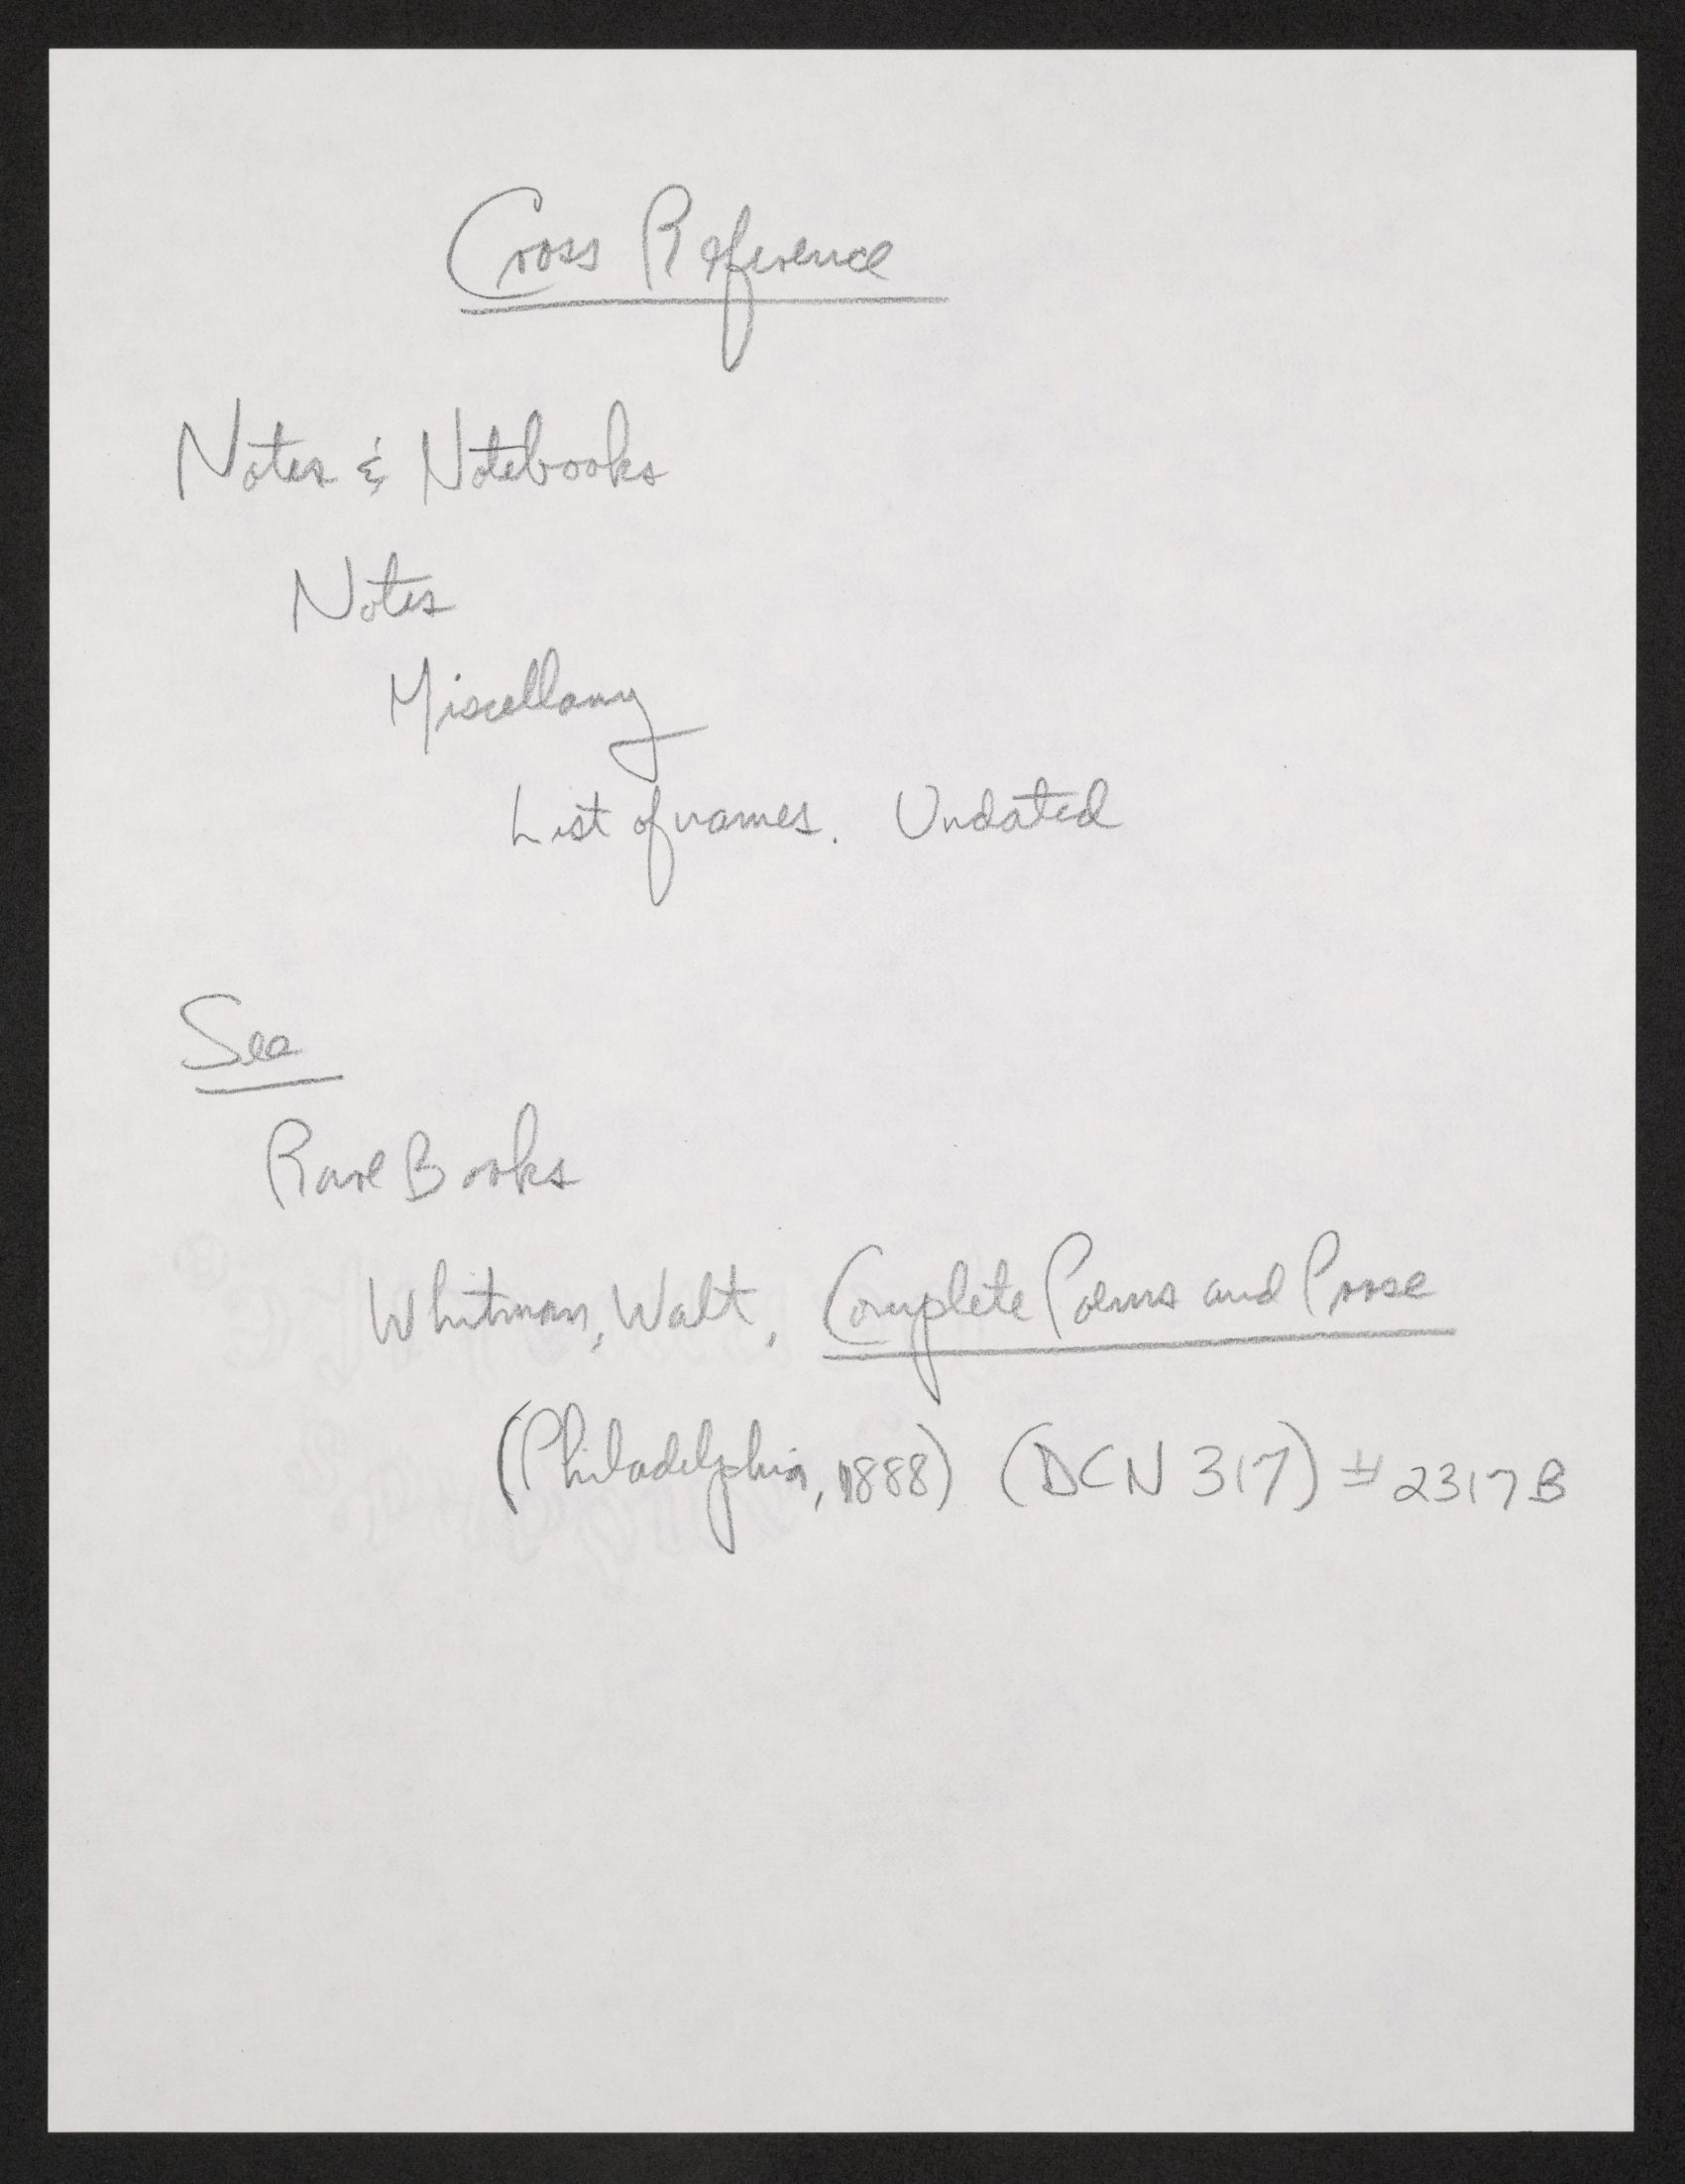 Cross Reference
Notes & Notebooks
Notes
Miscellany
List of names. Undated
See
Rare Books
Whitman, Walt, Complete Poems and Prose
(Philadelphia, 1888) (DCN 317) # 2317B